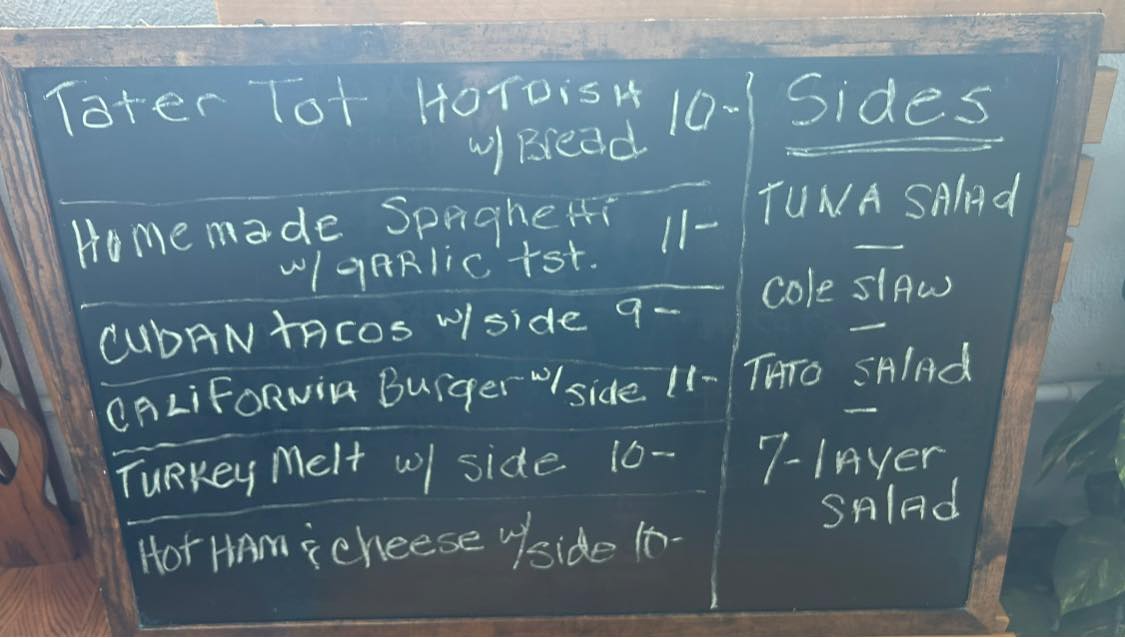 Tater Tot HOTDISH 10-
w/ Bread
Homemade Spaghetti 11-
w/ gARlic tst.
CUBAN tACOS w/ side 9-
CALiFORNiA Burger w/ side 11-
TURKey Melt w/ side 10-
Hot HAM & cheese w/ side 10-
Sides
TUNA SAlAd
—
Cole slAw
—
TATO SAlAd
—
7-lAyer
SAlAd